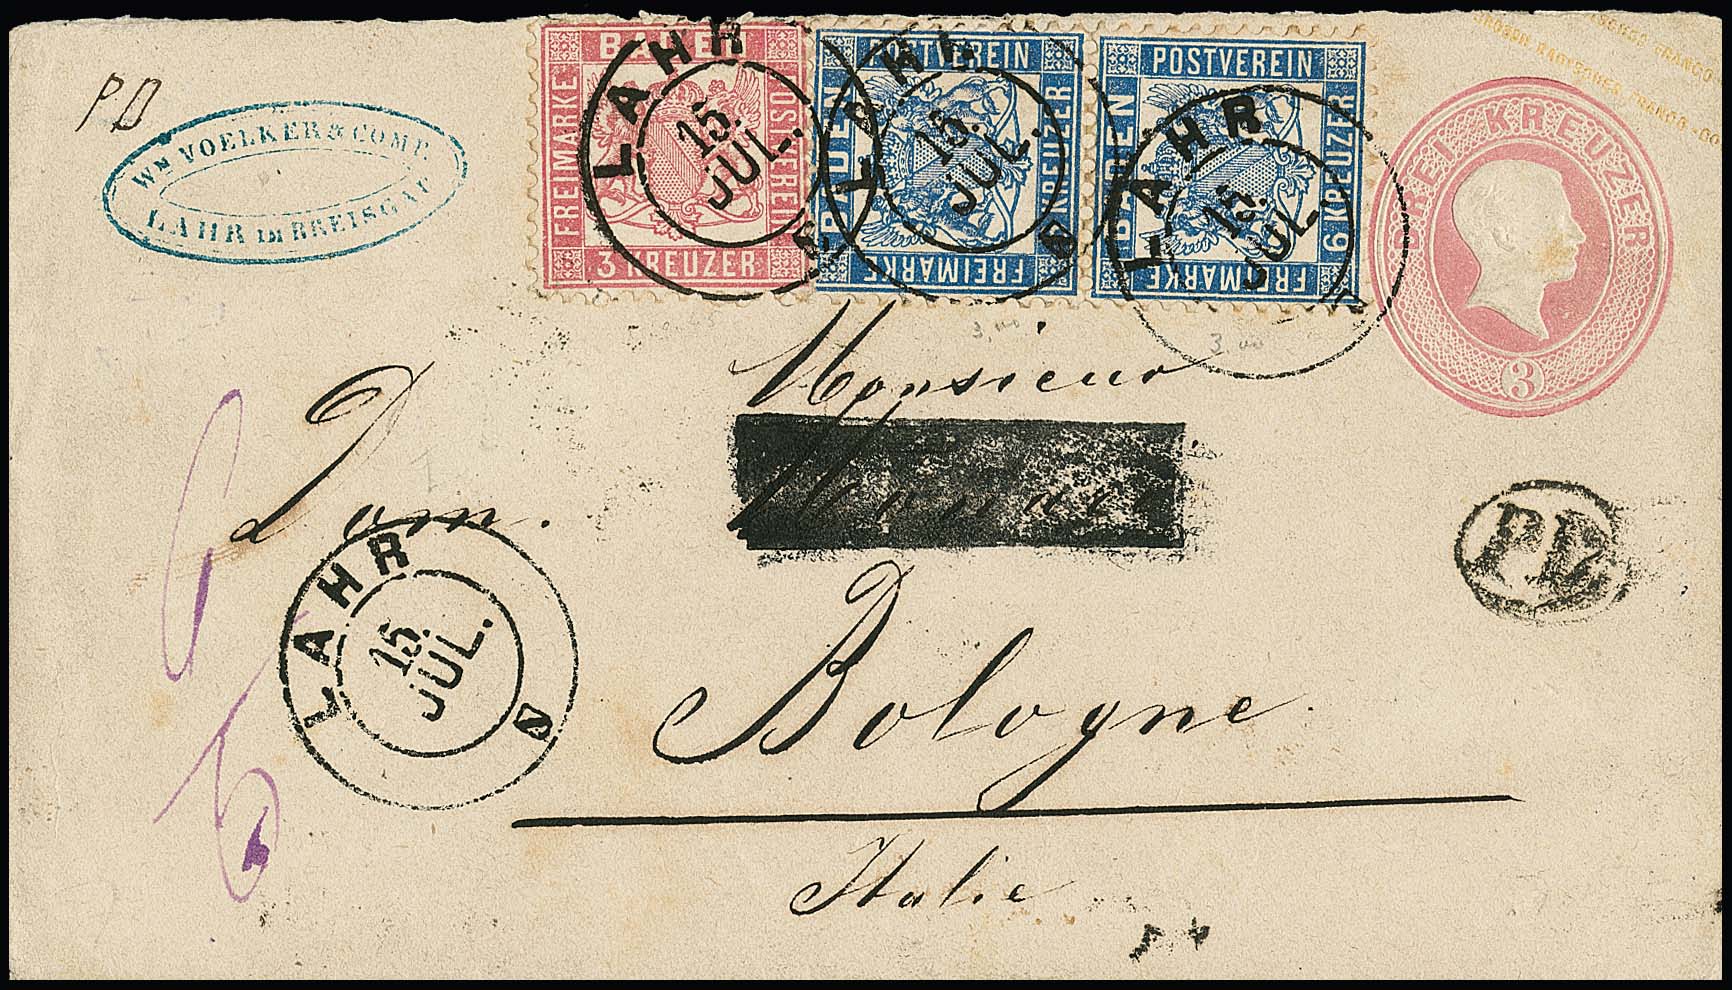 P.D
WM VOELKER & COMP.
LAHR IM BREISGAU
BADEN
POSTVEREIN
FREIMARKE
3 KREUZER
POSTVEREIN
BADEN
6 KREUZER
FREIMARKE
POSTVEREIN
BADEN
6 KREUZER
FREIMARKE
LAHR
15.
JUL.
LAHR
15.
JUL.
LAHR
15.
JUL.
DREI KREUZER
3
3,00
3,00
Monsieur
Dom.
LAHR
15.
JUL.
PD
Bologne.
Italie